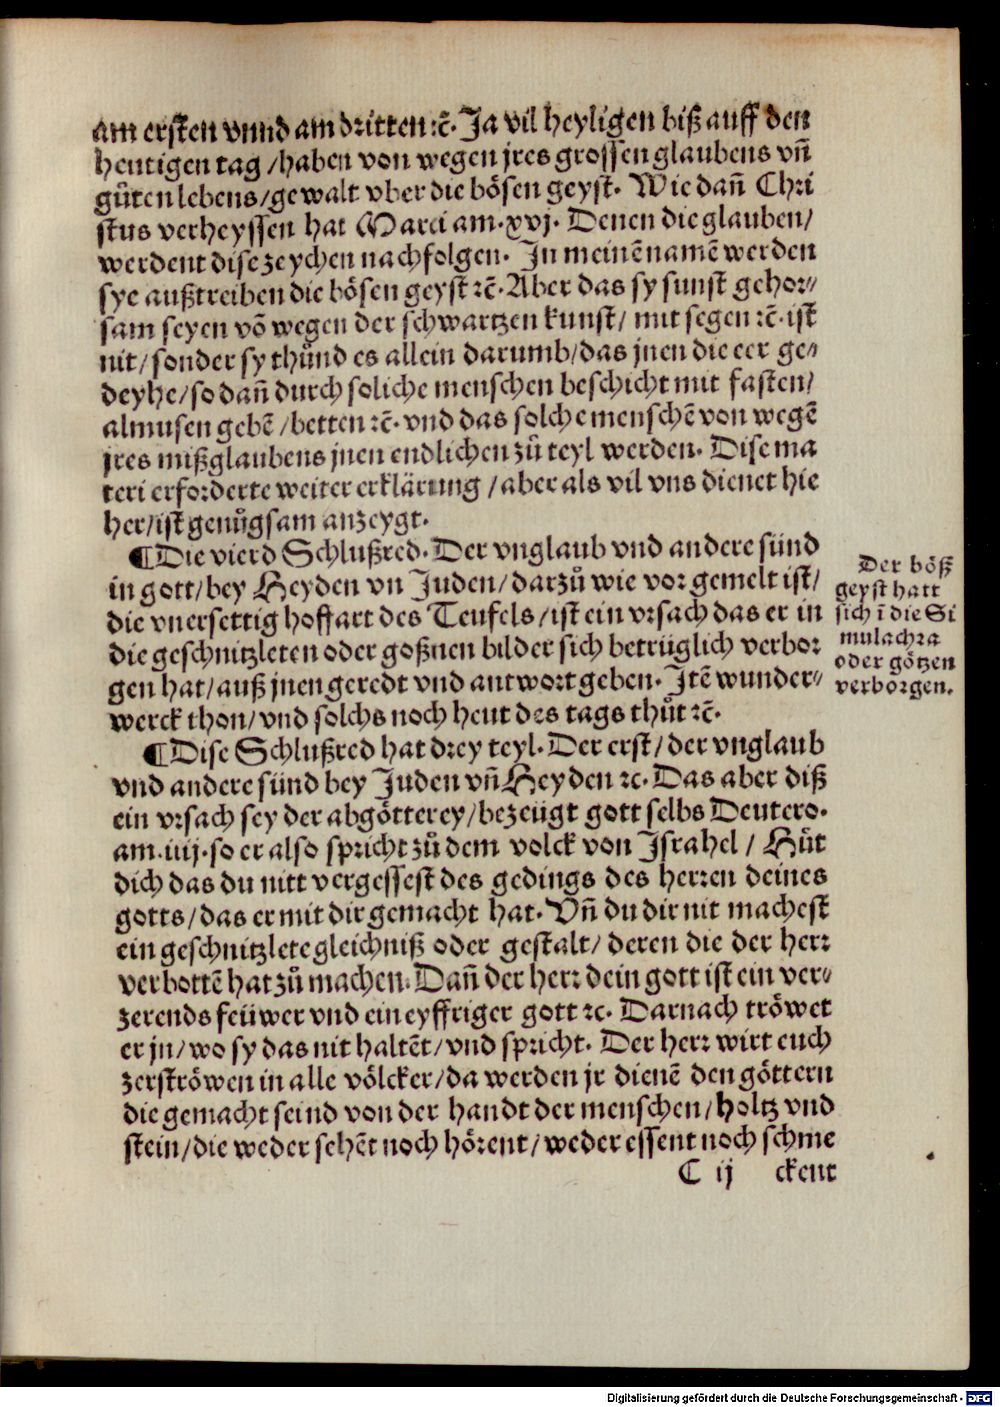 am ersten vnnd am dritten ꝛc̄. Ja vil heyligen biß auff den
heutigen tag /haben von wegen jres grossen glaubens vn̄
gůten lebens/gewalt vber die bösen geyst. Wie dan̄ Chri
stus verheyssen hat Marci am.xvj. Denen die glauben/
werdent dise zeychen nachfolgen. In meinē namē werden
sye außtreiben die bösen geyst ꝛc̄. Aber das sy sunst gehor⸗
sam seyen vō wegen der schwartzen kunst/ mit segen ꝛc̄. ist
nit/sonder sy thůnd es allein darumb/das jnen die eer ge⸗
deyhe/so dan̄ durch soliche menschen beschicht mit fasten/
almusen gebē /betten ꝛc̄. vnd das solche menschē von wegē
jres mißglaubens jnen endlichen zů teyl werden. Dise ma
teri erforderte weiter erklärung /aber als vil vns dienet hie
her/ist genůgsam anzeygt.
¶Die vierd Schlußred. Der vnglaub vnd andere sünd
in gott/bey Heyden vn Juden/darzů wie vor gemelt ist/
die vnersettig hoffart des Teufels/ist ein vrsach das er in
die geschnitzleten oder goßnen bilder sich betrüglich verbor
gen hat/auß jnen geredt vnd antwort geben. Itē wunder⸗
werck thon/vnd solchs noch heut des tags thůt ꝛc̄.
Der böß
geyst hatt
sich ī die Si
mulachra
oder götzen
verborgen.
¶Dise Schlußred hat drey teyl. Der erst/der vnglaub
vnd andere sünd bey Juden vn̄ Heyden ꝛc. Das aber diß
ein vrsach sey der abgötterey/bezeügt gott selbs Deutero.
am.iiij.so er also spricht zů dem volck von Israhel / Hüt
dich das du nitt vergessest des gedings des herren deines
gotts/das er mit dir gemacht hat. Vn̄ du dir nit machest
ein geschnitzlete gleichniß oder gestalt/deren die der herr
verbottē hat zů machen. Dan̄ der herr dein gott ist ein ver⸗
zerends feüwer vnd ein eyffriger gott ꝛc. Darnach tröwet
er jn/wo sy das nit haltēt/vnd spricht. Der herr wirt euch
zerströwen in alle völcker/da werden jr dienē den göttern
die gemacht seind von der handt der menschen/holtz vnd
stein/die weder sehēt noch hörent/weder essent noch schme
C ij ckent
Digitalisierung gefördert durch die Deutsche Forschungsgemeinschaft - DFG